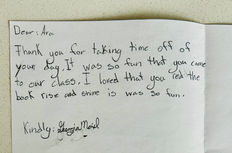 Dear: Ara
Thank you for taking time off of
your day. It was so fun that you came
to our class. I loved that you red the
book rise and shine is was so fun.
Kindly: